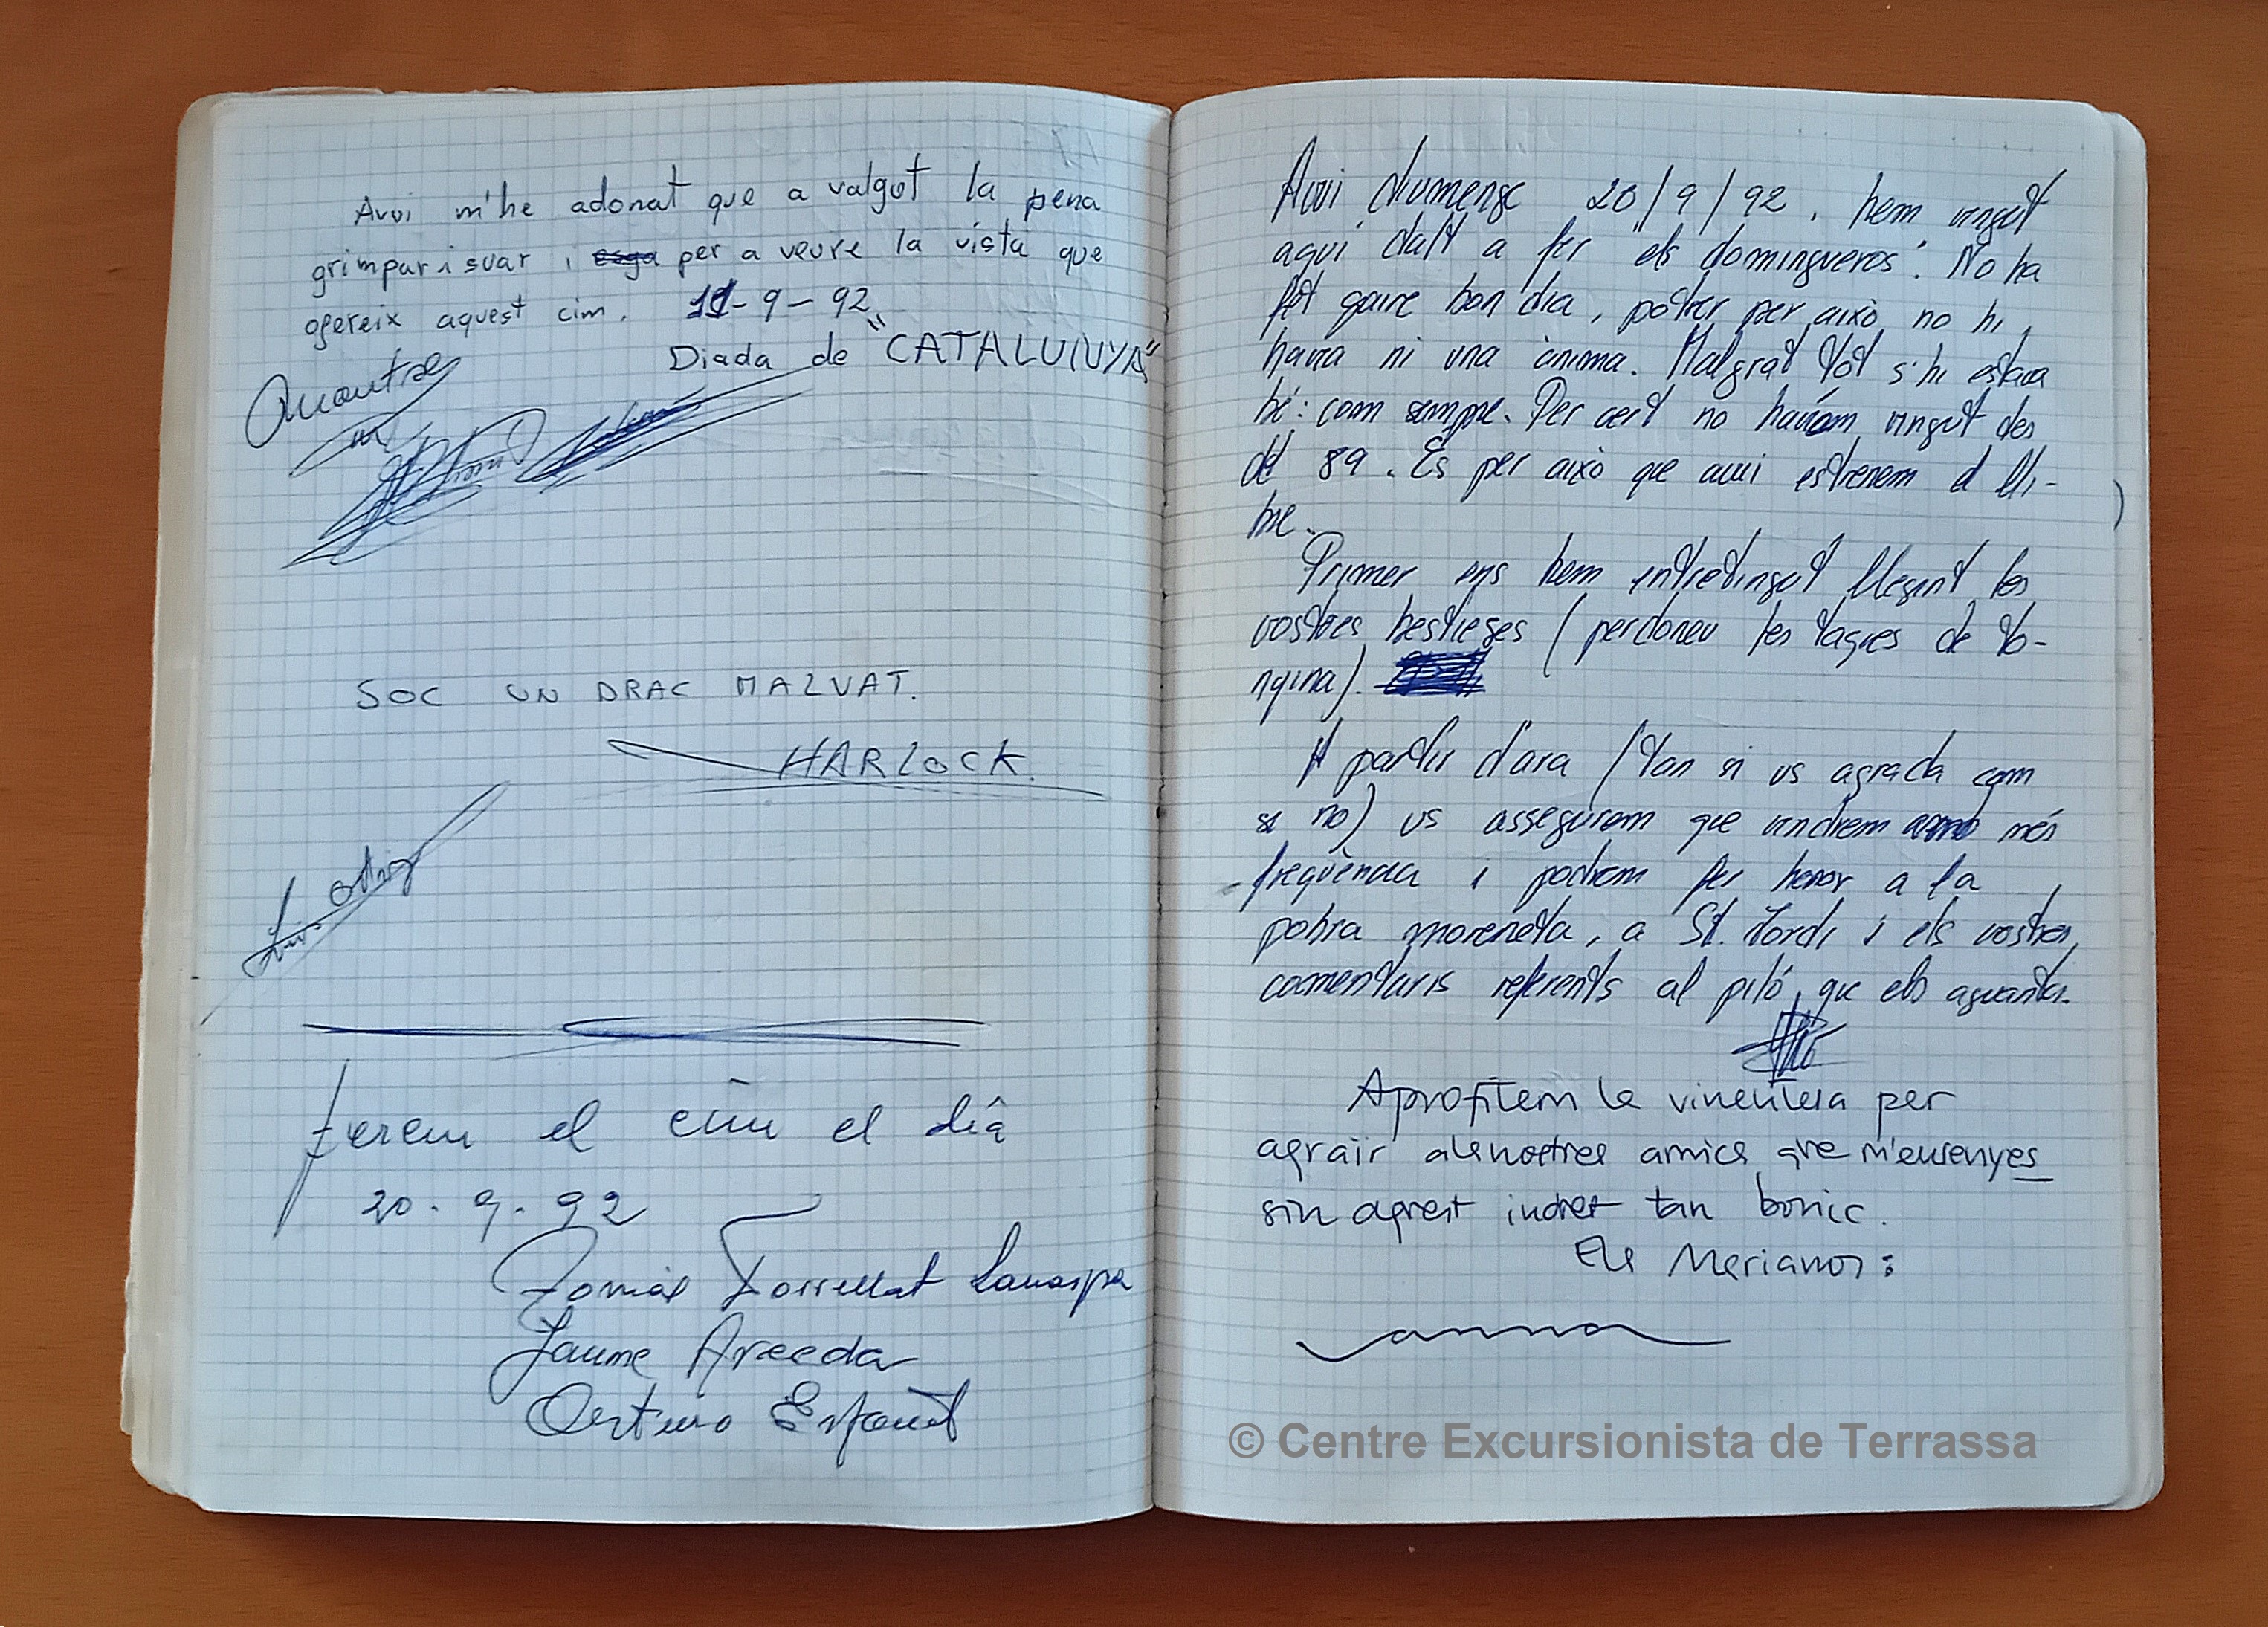 Avui m'he adonat que a valgut la pena
grimpar i suar i per a veure la vista que
ofereix aquest cim. 11-9-92
Diada de "CATALUNYA"
SOC UN DRAC MALVAT.
HARLOCK.
ferem el cim el dia
20.9.92
Tomàs Torrellat
Jaume
Arturo
Avui diumenge 20/9/92, hem vingut
aquí dalt a fer "els domingueros". No ha
fet gaire bon dia, potser per això no hi
havia ni una ànima. Malgrat tot s'hi estava
bé: com sempre. Per cert no havíem vingut des
del 89. És per això que avui estrenem el lli-
bre.
Primer ens hem entretingut llegint les
vostres bestieses (perdoneu les taques de to-
nyina).
A partir d'ara (tan si us agrada com
si no) us assegurem que vindrem amb més
freqüència i podrem fer honor a la
pobra moreneta, a St. Jordi i els vostres
comentaris referents al piló que els aguanta.
Aprofitem la vinentesa per
agraïr als nostres amics que n'ensenyes
sin aquest indret tan bonic.
Els Merianos:
anna
© Centre Excursionista de Terrassa